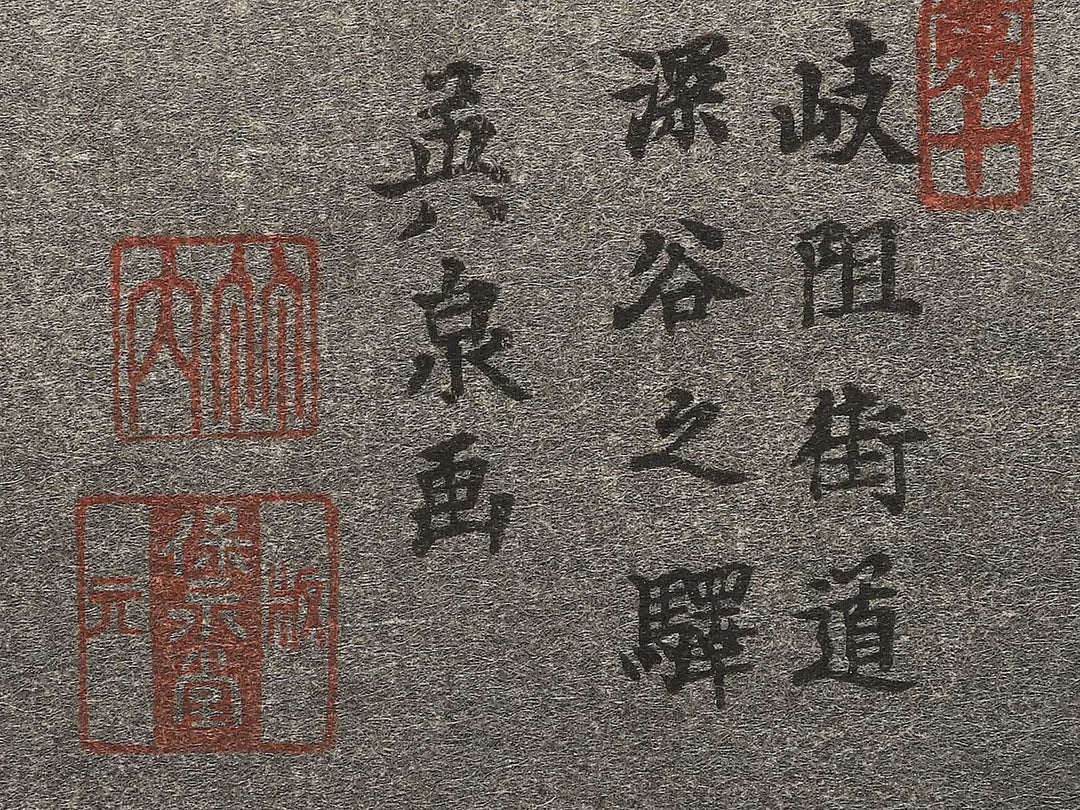 十
岐阻街道
深谷之驛
英泉画
竹内
版
保永堂
元